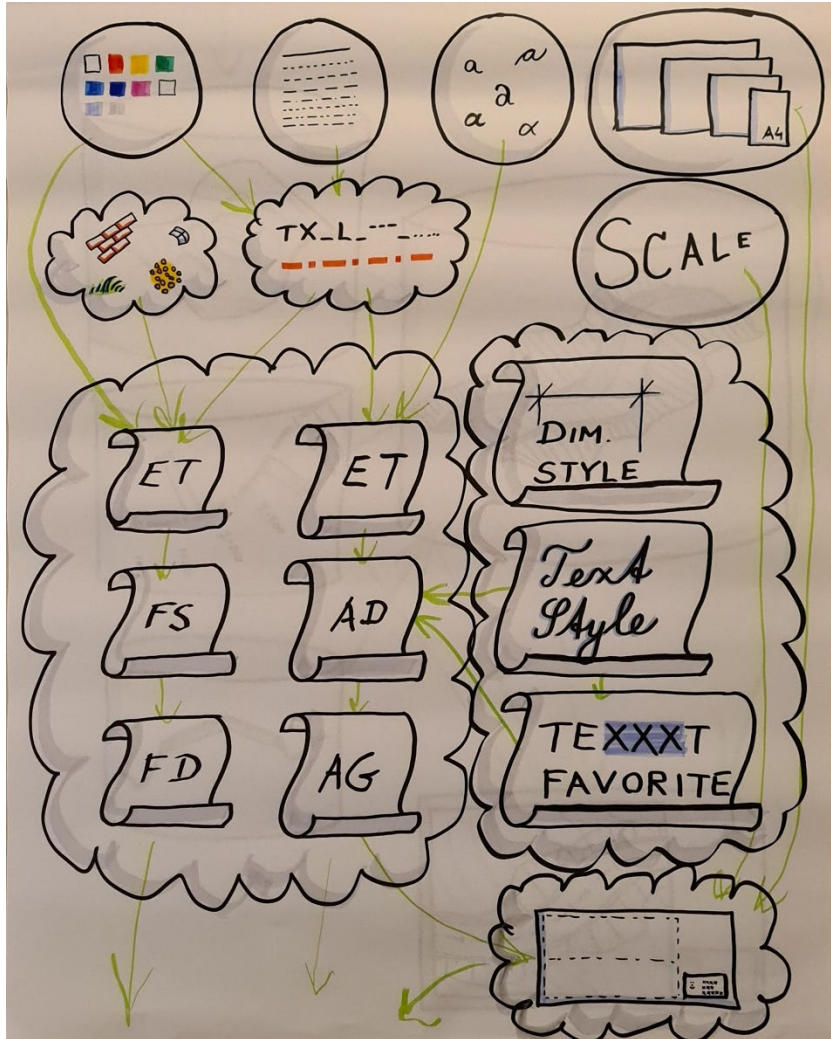 a a
a
a α
A4
TX_L_---_.....
SCALE
ET
ET
DIM.
STYLE
FS
AD
Text
Style
FD
AG
TEXXXT
FAVORITE